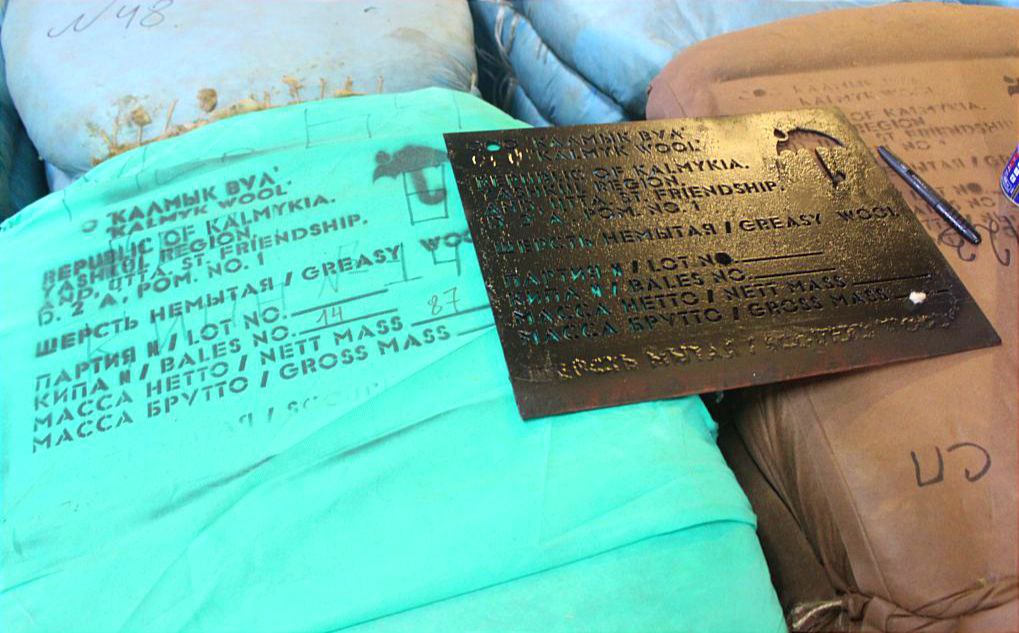 N 48.
"КАЛМЫК ВУЛ"
"KALMYK WOOL"
REPUBLIC OF KALMYKIA.
YASHKUL REGION,
УНР, UTTA, ST. FRIENDSHIP.
D. 2 A, POM. NO. 1
ШЕРСТЬ НЕМЫТАЯ / GREASY WOOL
ПАРТИЯ N / LOT NO.
КИПА N / BALES NO. 14
МАССА НЕТТО / NETT MASS 87
МАССА БРУТТО / GROSS MASS
"КАЛМЫК ВУЛ"
"KALMYK WOOL"
REPUBLIC OF KALMYKIA.
REGION,
UTTA, ST. FRIENDSHIP.
D. 2 A, POM. NO. 1
ШЕРСТЬ НЕМЫТАЯ / GREASY WOOL
ПАРТИЯ N / LOT NO.
КИПА N / BALES NO.
МАССА НЕТТО / NETT MASS
МАССА БРУТТО / GROSS MASS
ШЕРСТЬ МЫТАЯ /
KALMYK WOOL
KALMYKIA.
REGION
ST. FRIENDSHIP